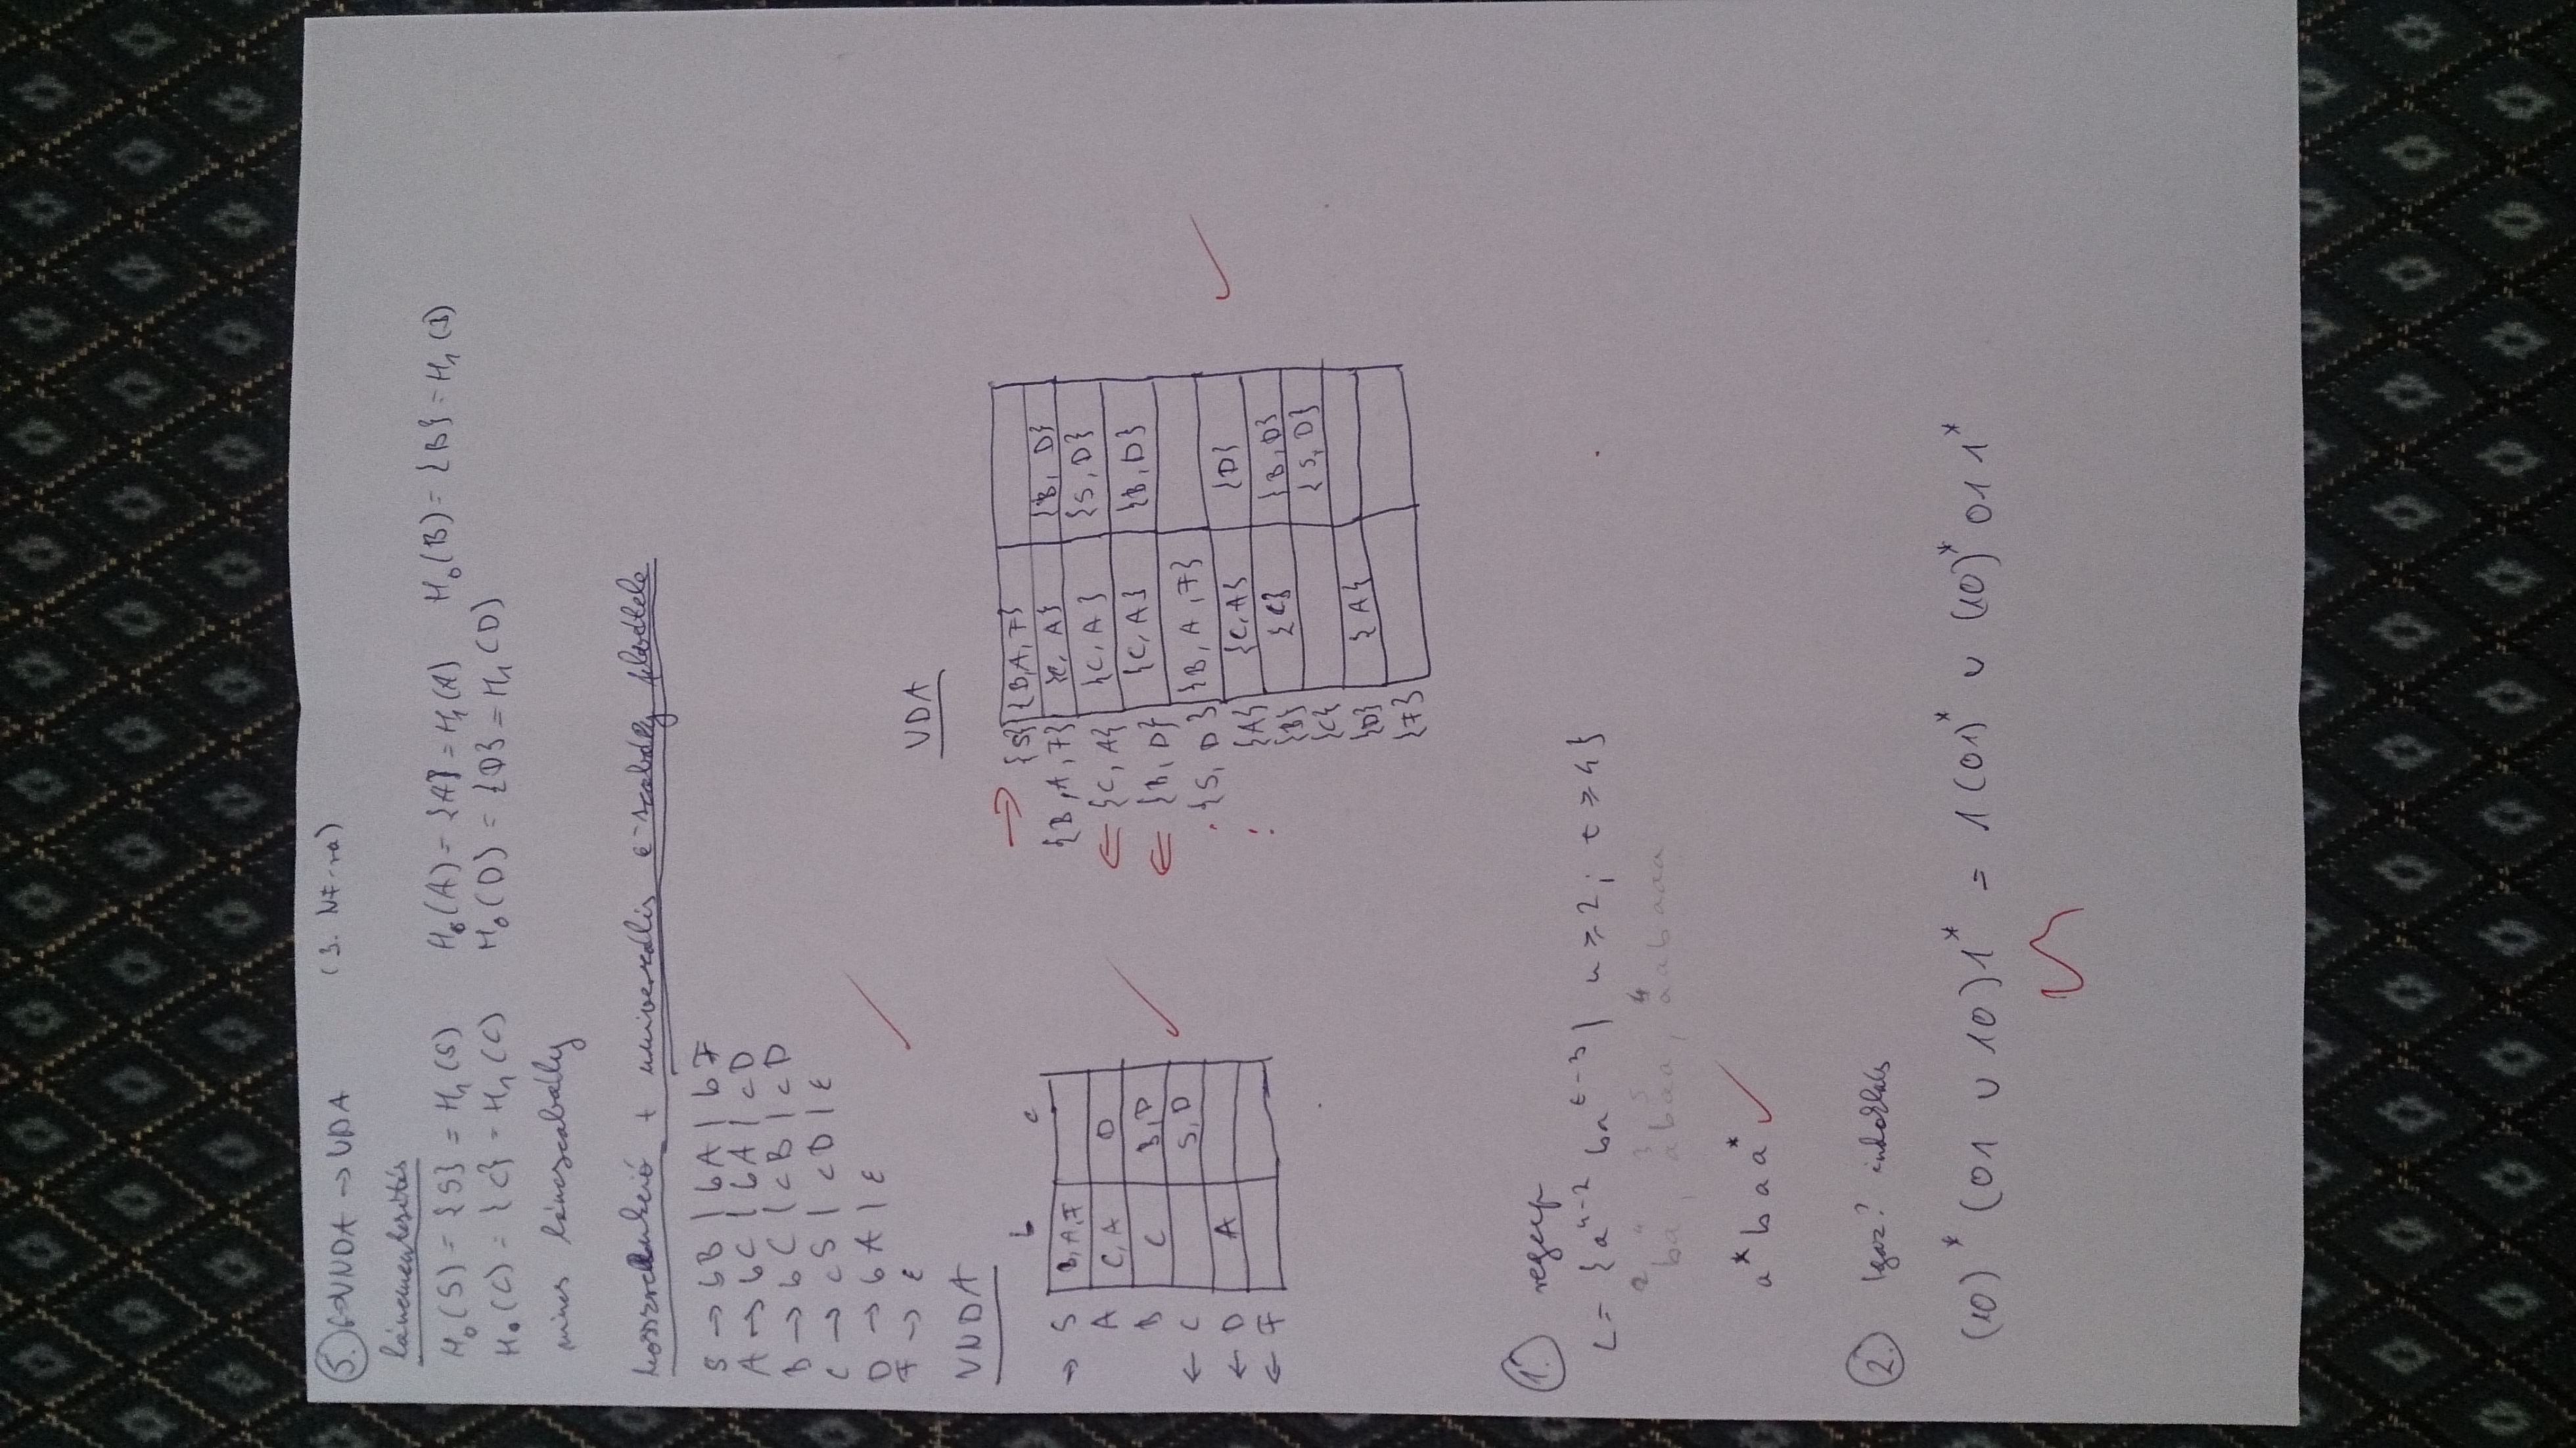 5. G→VNDA → VDA (3. NF-ra)
láncmentesítés
H₀(S) = {S} = H₁(S) H₀(A) = {A} = H₁(A) H₀(B) = {B} = H₁(B)
H₀(C) = {C} = H₁(C) H₀(D) = {D} = H₁(D)
nincs láncszabály
hosszredukció + univerzális ε-szabály felvétele
S → bB | bA | bF
A → bC | bA | cD
B → bC | cB | cD
C → cS | cD | ε
D → bA | ε
F → ε
VNDA
b c
→ S B,A,F
A C,A D
B C B,D
← C S,D
← D A
← F
VDA
→ {S} {B,A,F}
{B,A,F} {C,A} {B,D}
← {C,A} {C,A} {S,D}
← {B,D} {C,A} {B,D}
{S,D} {B,A,F}
{A} {C,A} {D}
{B} {C} {B,D}
{C} {S,D}
{D} {A}
{F}
1. regexp
L = {aⁿ⁻² baᵗ⁻³ | n ≥ 2; t ≥ 4}
ba, abaa, aabaaa
a* b a a*
2. Igaz? indoklás
(10)* (01 ∪ 10)1* = 1(01)* ∪ (10)* 01 1*